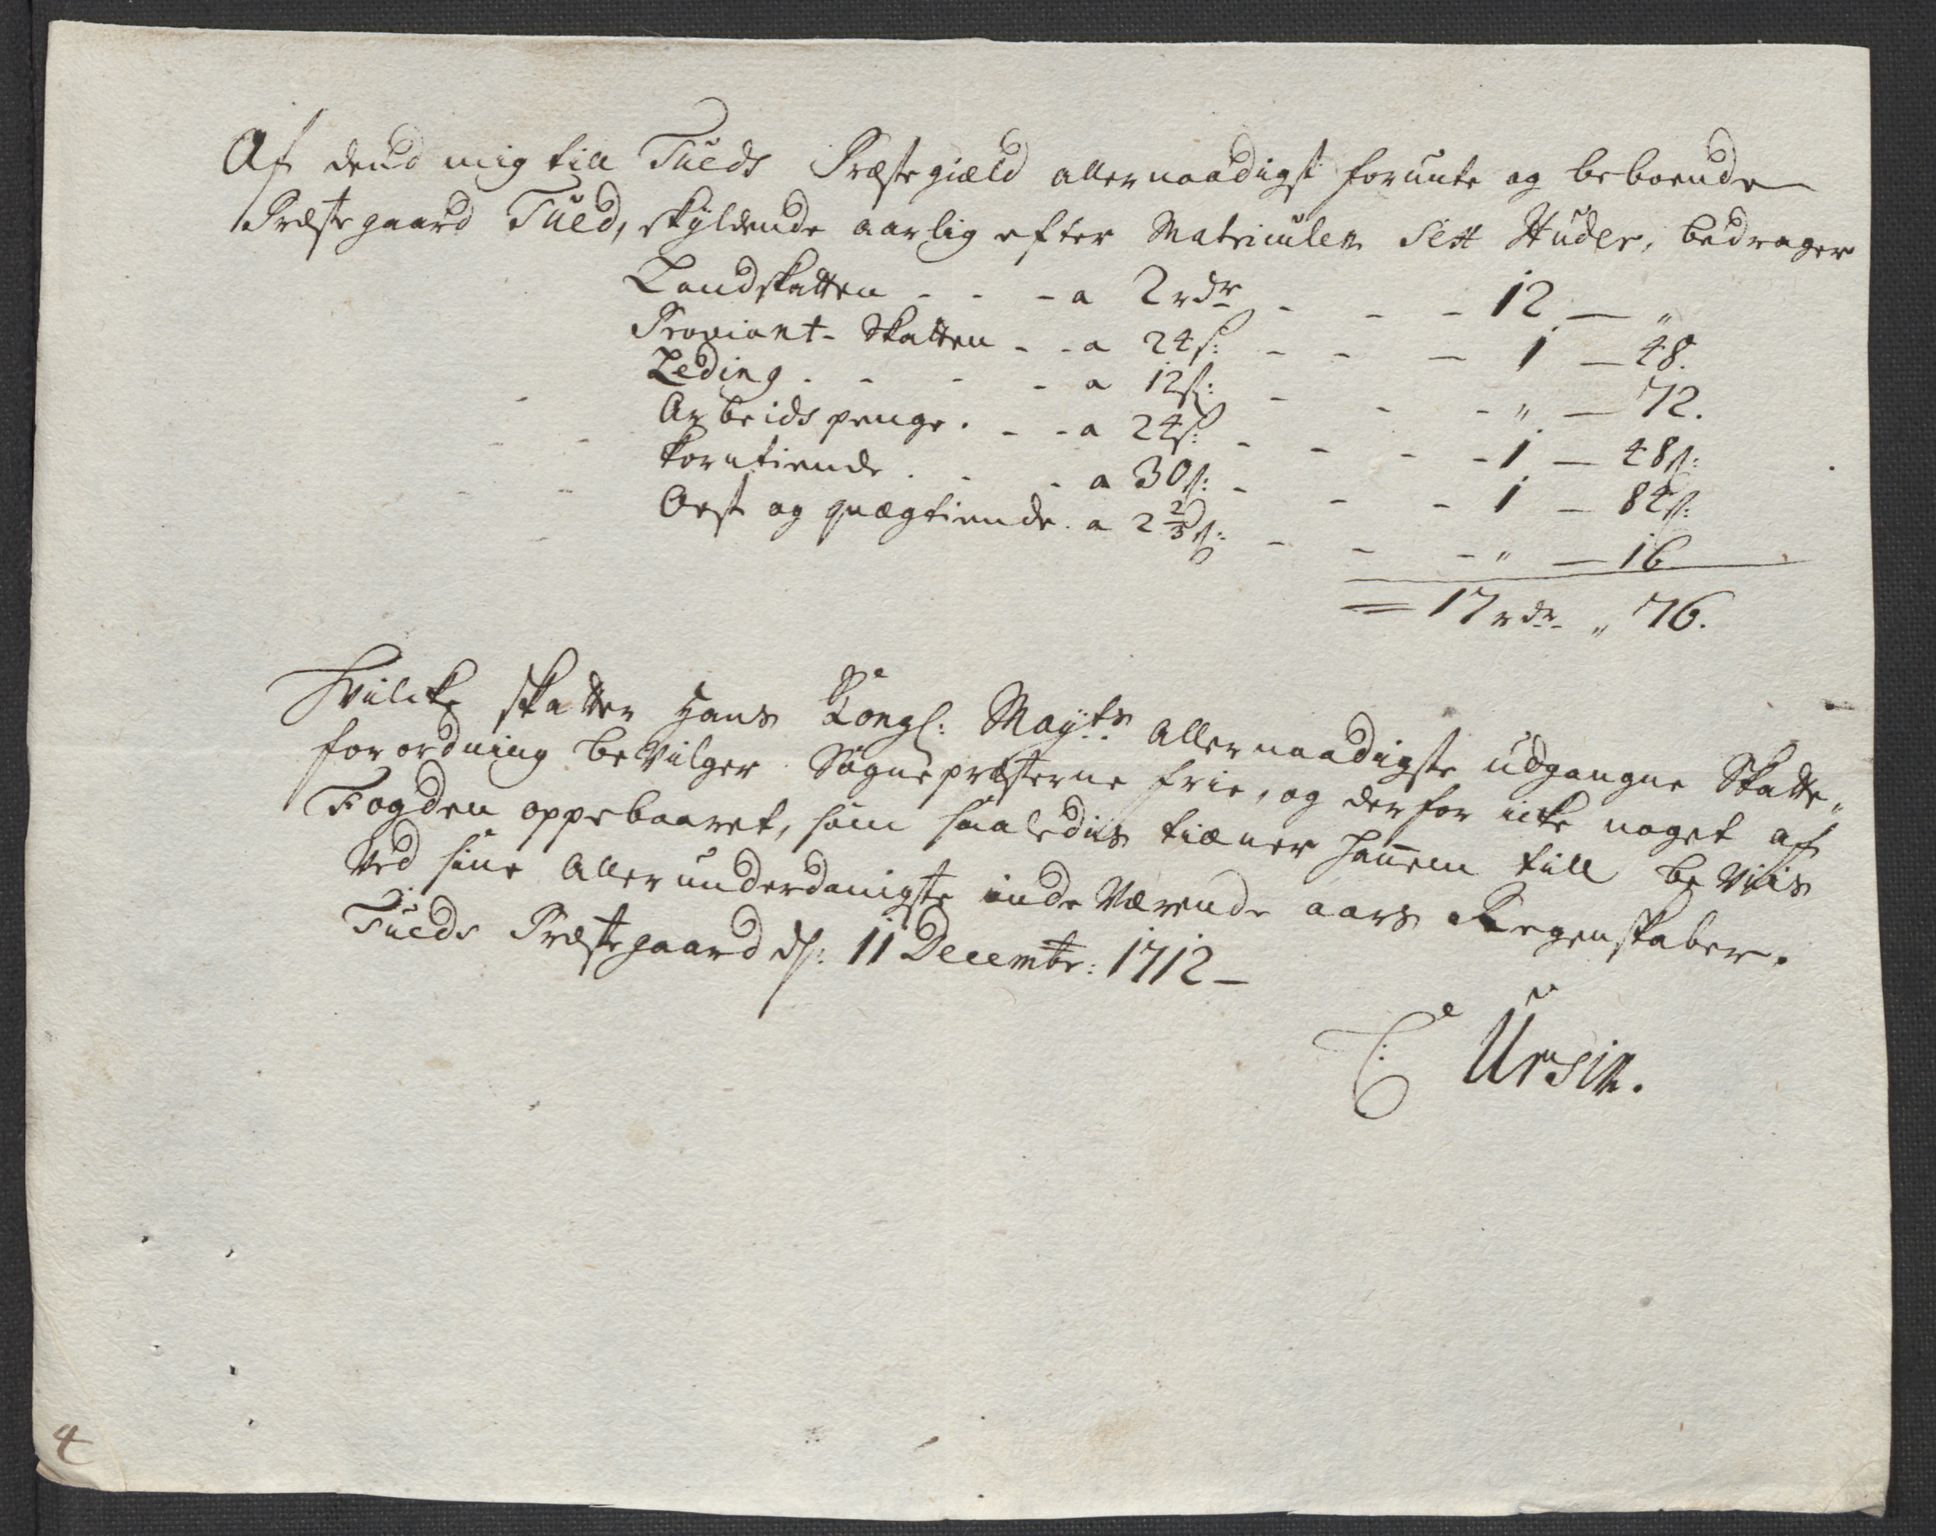 Af dend mig till Tueds Præstegiæld allernaadigst forunte og beboende
Præstegaard Tued, skyldende aarlig efter Matriculen Sex Huder, bedrager
Landskatten - - - a 2 rdr - - - 12 — "
Proviant-Skatten - - a 24 s: - - — 1 — 48.
Leding. - - - a 12 s: - - - " — 72.
Arbeidspenge. - - a 24 s: - - - - 1 — 48 s:
Korntiende. - - a 30 s: - - - 1 — 84 s:
Oest og quægtiende. a 2 2/3 s: - - - " — 16
= 17 rdr - " 76.
Hvilcke skatter Hans Kongl: Mayts Allernaadigste udgangne Skatte-
forordning beVilger Sognepræsterne frie, og derfor icke noget af
Fogden oppebaaret, som saaledis tiæner hannem till beViis
Ved sine Allerunderdanigste indeVærende aars Regenskaber.
Tueds Præstegaard d: 11 Decembr: 1712 -
C: Ursin.
4